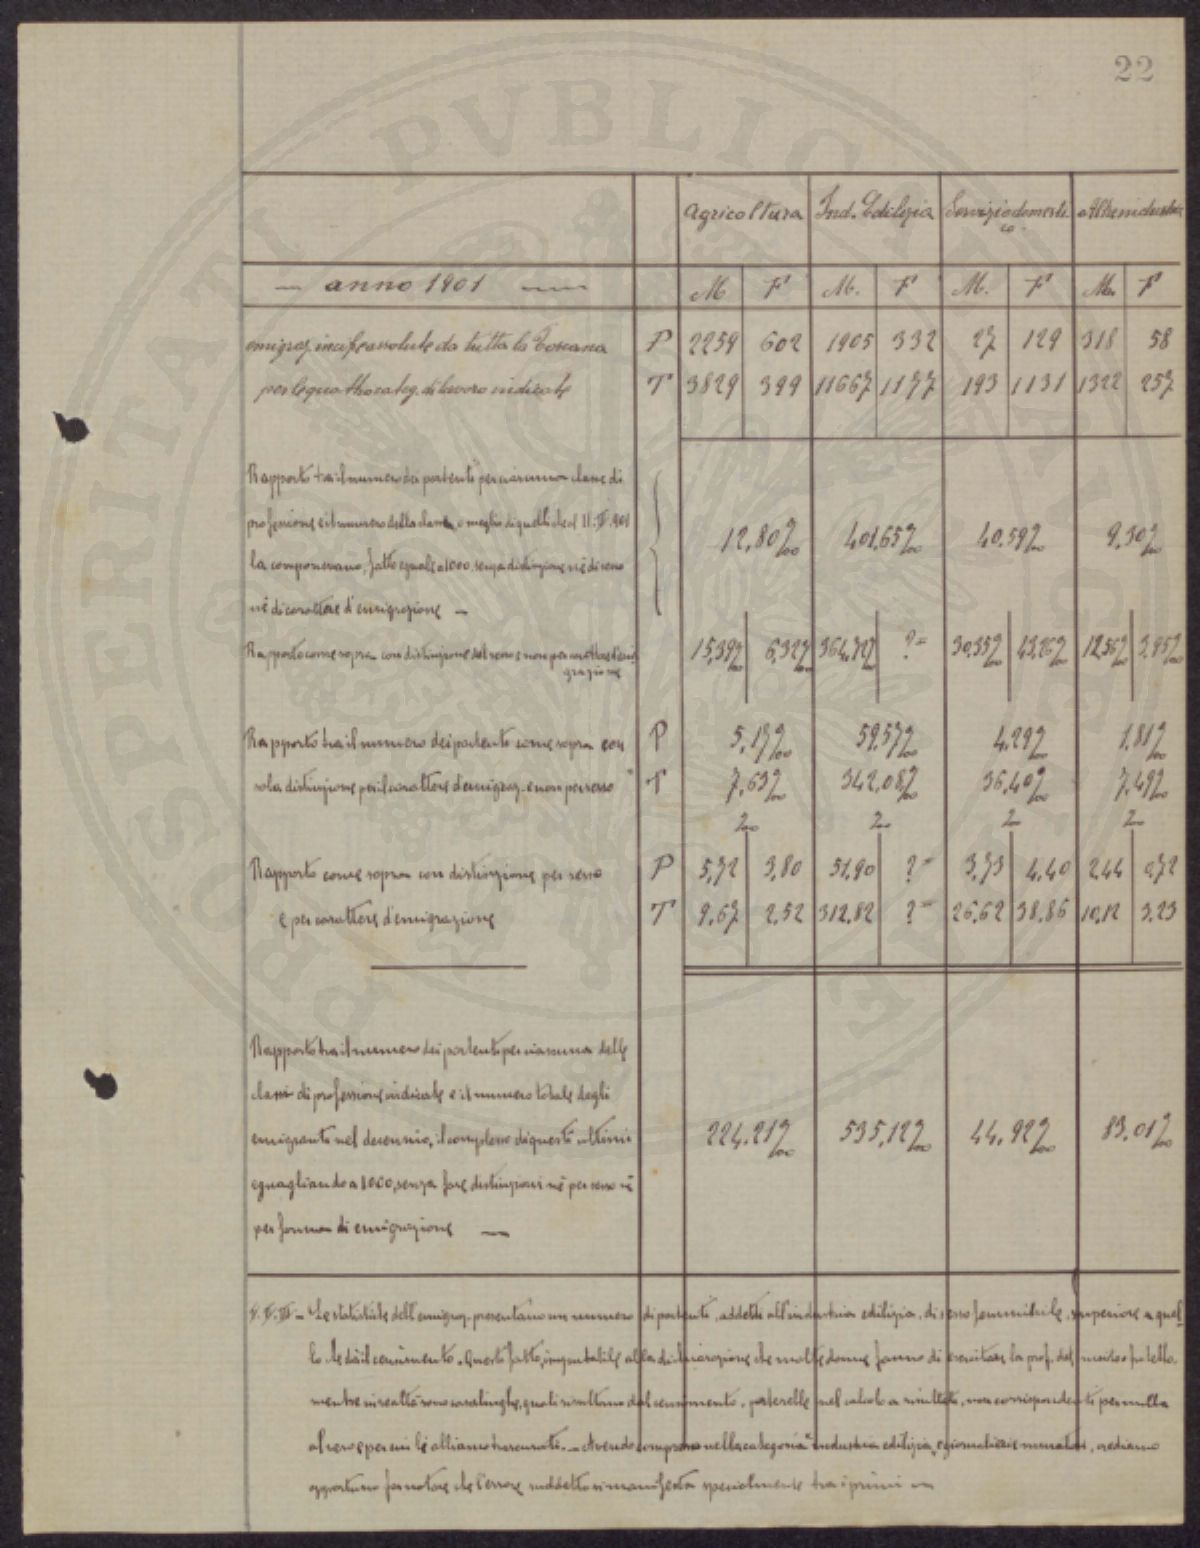 22
Agricoltura Ind. Edilizia Servizio domesti co. Altre industrie
— anno 1901 —
M F M. F M. F M. F
emigraz. in cifre assolute da tutta la Toscana P 2259 602 1905 332 27 129 318 58
per le quattro categ. di lavoro indicate T 3829 399 11667 1177 193 1131 1322 257
Rapporto tra il numero dei partenti per ciascuna classe di
professione e il numero della classe, o meglio di quelli che al 11. II. 901
la componevano, fatto eguale a 1000, senza distinzione nè di sesso
nè di carattere d'emigrazione —
12,80‰ 401,65‰ 40,59‰ 9,30‰
Rapporto come sopra con distinzione del sesso e non per carattere d'emi
grazione
15,39‰ 6,32‰ 364,72‰ ?= 30,35‰ 43,26‰ 12,56‰ 3,95‰
Rapporto tra il numero dei partenti come sopra con P 5,17‰ 59,57‰ 4,29‰ 1,81‰
sola distinzione per il carattere d'emigraz. e non per sesso T 7,63‰ 342,08‰ 36,40‰ 7,49‰
‰ ‰ ‰ ‰
Rapporto come sopra con distinzione per sesso P 5,72 3,80 51,90 ?= 3,73 4,40 2,44 0,72
e per carattere d'emigrazione T 9,67 2,52 312,82 ?= 26,62 38,86 10,12 3,23
Rapporto tra il numero dei partenti per ciascuna delle
classi di professione indicate e il numero totale degli
emigranti nel decennio, il complesso di questi ultimi
eguagliando a 1000, senza fare distinzioni nè per sesso nè
per forma di emigrazione —
224,21‰ 535,12‰ 44,92‰ 83,01‰
Le statistiche dell'emigraz. presentano un numero di partenti, addetti all'industria edilizia, di sesso femminile, superiore a quel
lo che dà il censimento. Questo fatto, imputabile alla dichiarazione che molte donne fanno di esercitare la prof. del marito o fratello
mentre in realtà sono casalinghe, quali risultano dal censimento, porterebbe nel calcolo a risultati, non corrispondenti per nulla
al vero e per cui li abbiamo trascurati. — Avendo compreso nella categoria "industria edilizia" giornalieri e muratori, crediamo
opportuno far notare che l'errore suddetto si manifesta specialmente tra i primi —
PROSPERITATI PVBLICAE